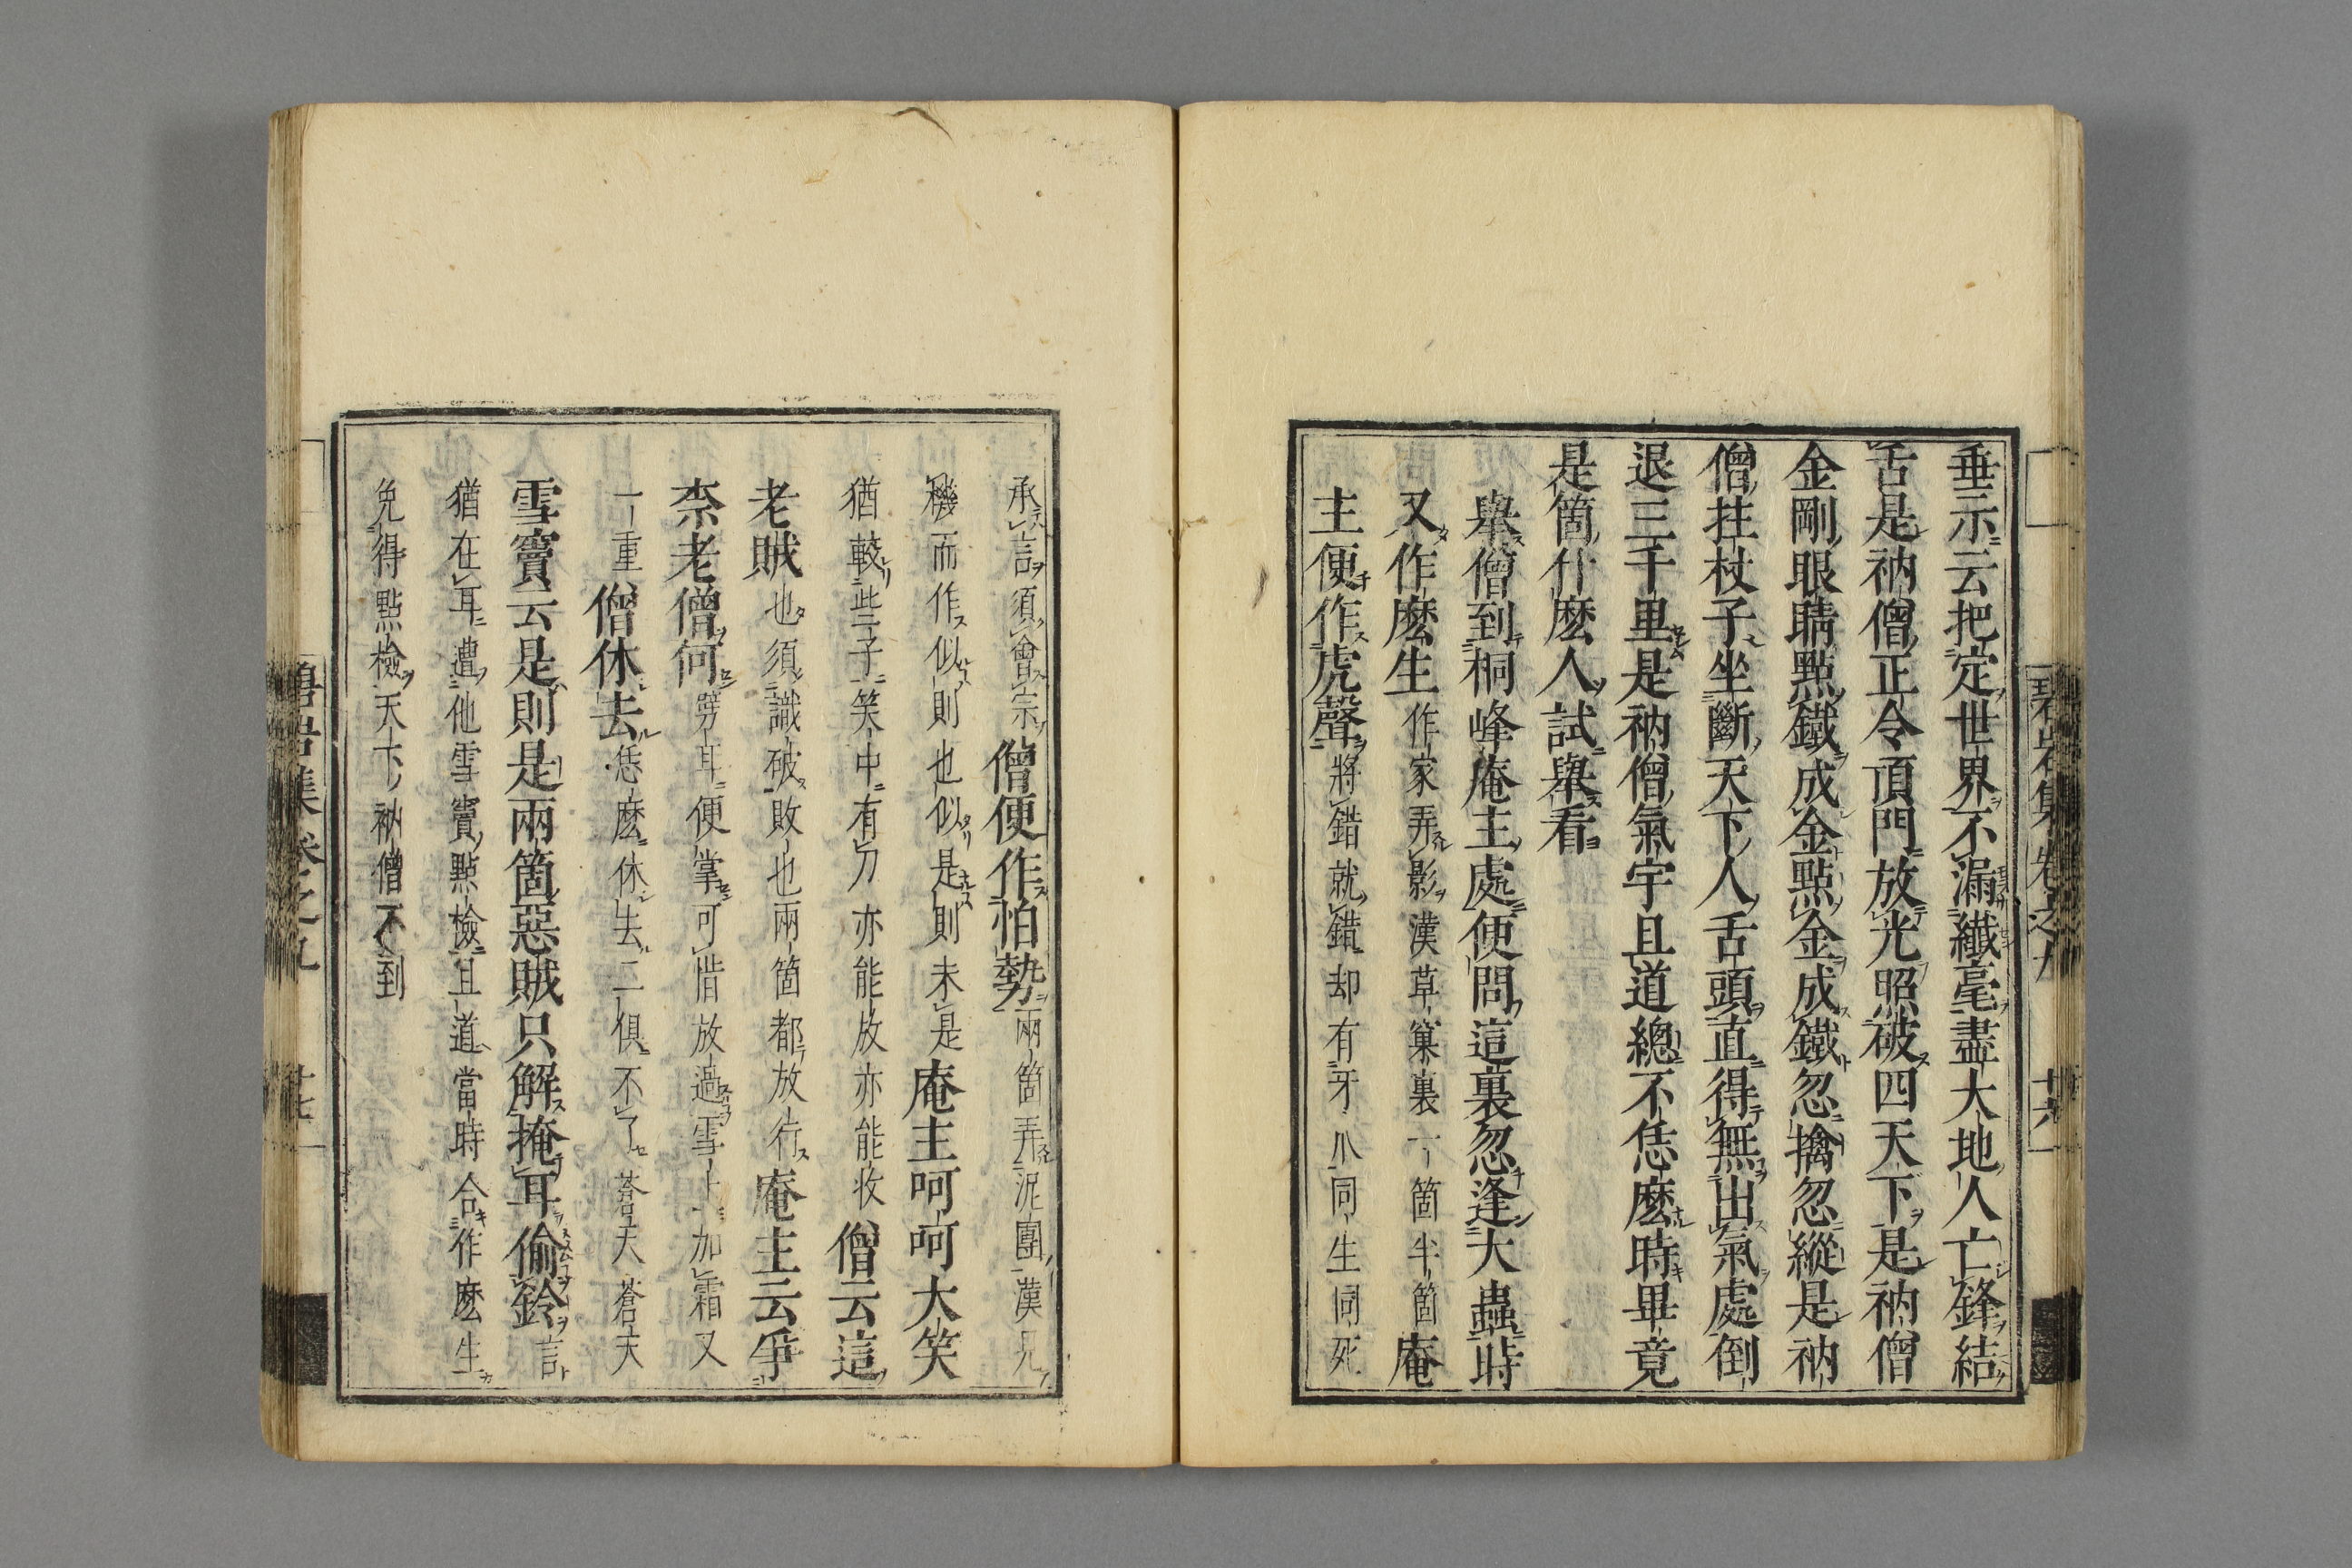 垂示云把定世界不漏纖毫盡大地人亡鋒結
舌是衲僧正令頂門放光照破四天下是衲僧
金剛眼睛點鐵成金點金成鐵忽擒忽縱是衲
僧拄杖子坐斷天下人舌頭直得無出氣處倒
退三千里是衲僧氣宇且道總不恁麽時畢竟
是箇什麽人試舉看
舉僧到桐峰庵主處便問這裏忽逢大蟲時
又作麽生作家弄影漢草窠裏一箇半箇庵
主便作虎聲將錯就錯却有牙爪同生同死
承言須會宗僧便作怕勢兩箇弄泥團漢見
機而作似則也似是則未是庵主呵呵大笑
猶較些子笑中有刀亦能放亦能收僧云這
老賊也須識破敗也兩箇都放行庵主云爭
柰老僧何劈耳便掌可惜放過雪上加霜又
一重僧休去恁麽休去二俱不了蒼天蒼天
雪竇云是則是兩箇惡賊只解掩耳偷鈴言
猶在耳遭他雪竇點檢且道當時合作麽生
免得點檢天下衲僧不到
碧岩集卷之九
廿六
碧岩集卷之九
廿七